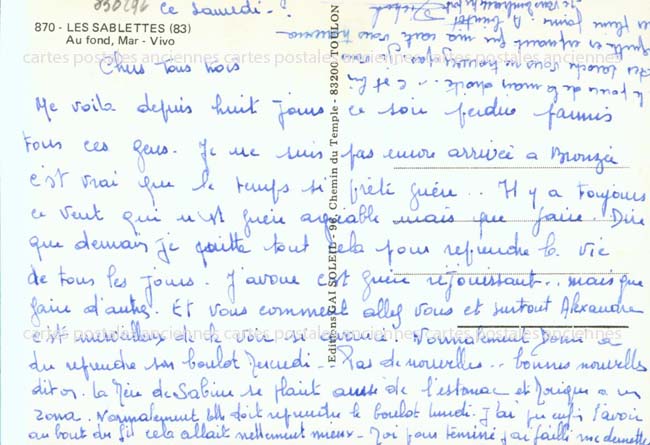 ce samedi - ?
870 - LES SABLETTES (83)
Au fond, Mar - Vivo
Chers tous trois
Me voilà depuis huit jours ce soir perdue parmis
tous ces gens. Je ne suis pas encore arrivée à Bronzée
c'est vrai que le temps s'y prête guère.. Il y a toujours
ce vent qui n'est guère agréable mais que faire. Dire
que demain je quitte tout cela pour reprendre la vie
de tous les jours. J'avoue c'est guère réjouissant.. mais que
faire d'autre. Et vous comment allez vous et surtout Alexandre
c'est merveilleux de le voir si avancé. Normalement a
du reprendre son boulot Mercredi - Pas de nouvelles.. bonnes nouvelles
dit on. La Mère de Sabine se plaint aussi de l'estomac et Monique a un
zona. Normalement elle doit reprendre le boulot lundi. J'ai pu enfin l'avoir
au bout du fil cela allait nettement mieux - Moi pour terminer j'ai failli me demettre
le pouce de la main droite... c'est
A bientôt
Editions GAI SOLEIL - 96, Chemin du Temple - 83200 TOULON
cartes postales anciennes cartes postales anciennes cartes postales anciennes
cartes postales anciennes cartes postales anciennes cartes postales anciennes